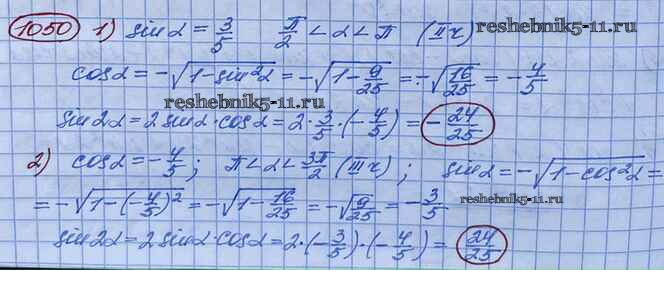 1050 1) sin α = 3/5 π/2 < α < π (II ч)
reshebnik5-11.ru
cos α = -√(1-sin²α) = -√(1-9/25) = -√(16/25) = -4/5
reshebnik5-11.ru
sin 2α = 2 sin α · cos α = 2 · 3/5 · (-4/5) = -24/25
2) cos α = -4/5 ; π < α < 3π/2 (III ч) ; sin α = -√(1-cos²α) =
= -√(1-(-4/5)²) = -√(1-16/25) = -√(9/25) = -3/5
reshebnik5-11.ru
sin 2α = 2 sin α · cos α = 2 · (-3/5) · (-4/5) = 24/25